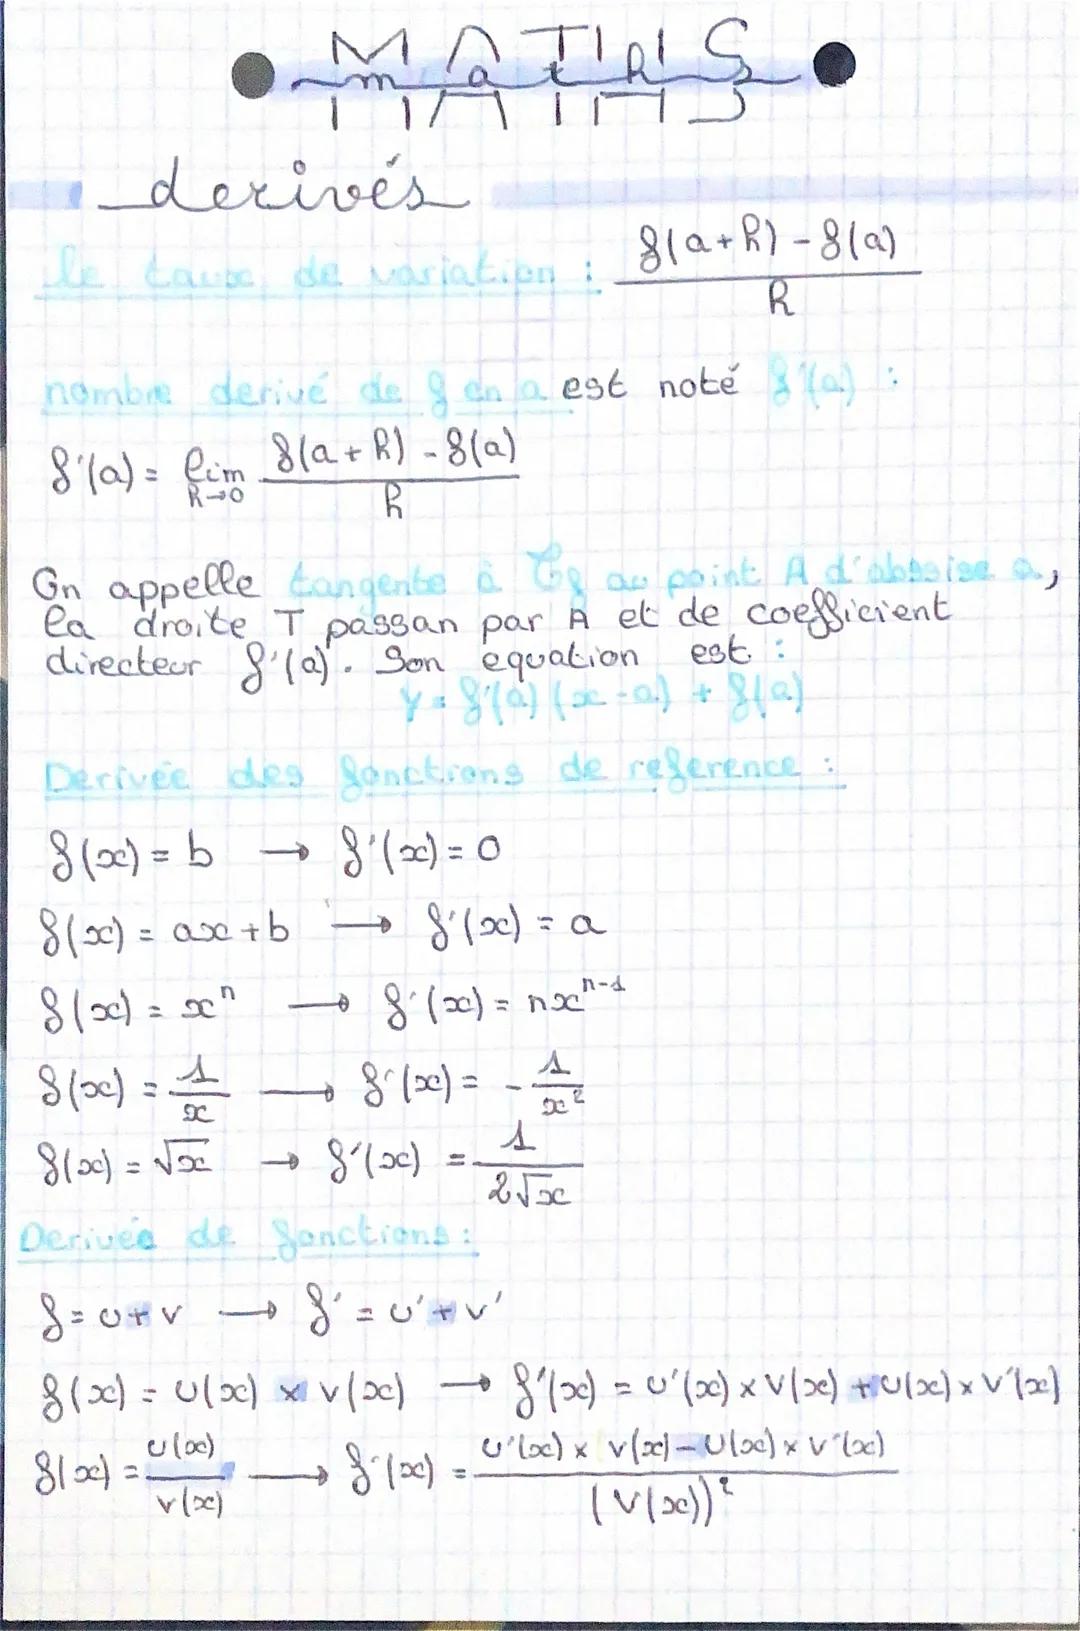 MATHS
maths
derivés
le taux de variation : f(a+h) - f(a) / h
nombre derivé de f en a est noté f'(a) :
f'(a) = lim h→0 f(a+h) - f(a) / h
On appelle tangente à Cf au point A d'absise a,
la droite T passan par A et de coefficient
directeur f'(a). Son equation est :
y = f'(a) (x-a) + f(a)
Derivée des fonctions de reference :
f(x) = b → f'(x) = 0
f(x) = ax+b → f'(x) = a
f(x) = xⁿ → f'(x) = nxⁿ⁻¹
f(x) = 1/x → f'(x) = - 1/x²
f(x) = √x → f'(x) = 1/2√x
Derivée de fonctions :
f = u+v → f' = u'+v'
f(x) = u(x) × v(x) → f'(x) = u'(x) × v(x) + u(x) × v'(x)
f(x) = u(x)/v(x) → f'(x) = u'(x) × v(x) - u(x) × v'(x) / (v(x))²